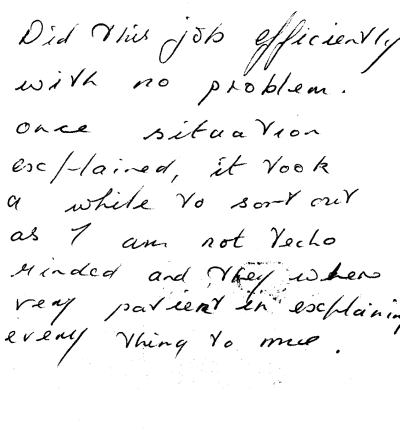 Did this job efficiently
with no problem.
once situation
explained, it took
a while to sort out
as I am not techo
minded and they when
very patient in explaining
every thing to me.